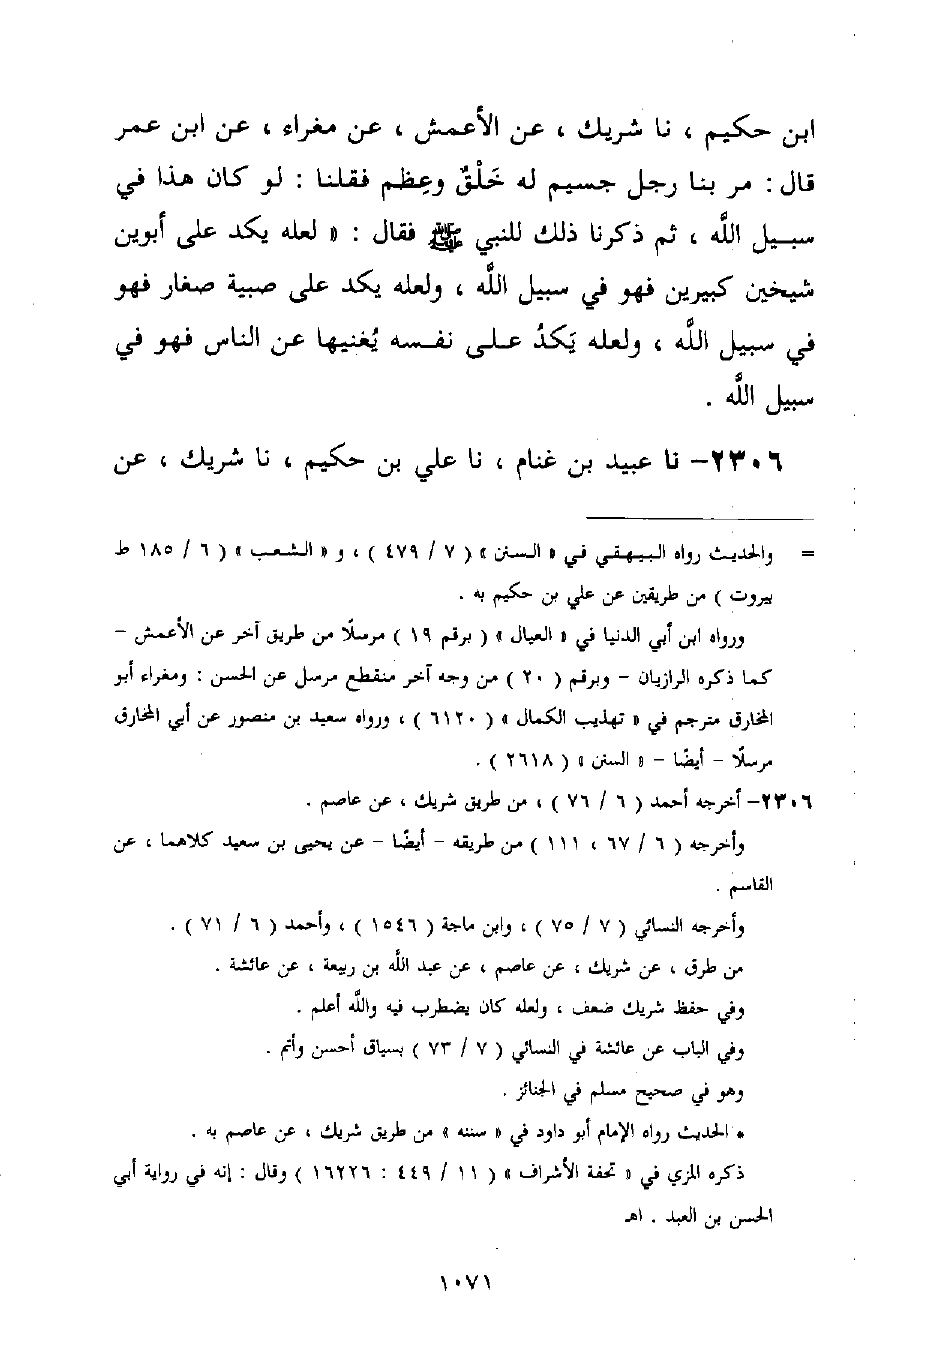 ابن حكيم ، نا شريك ، عن الأعمش ، عن مغراء ، عن ابن عمر
قال : مر بنا رجل جسيم له خَلْقٌ وعِظم فقلنا : لو كان هذا في
سبيل اللَّه ، ثم ذكرنا ذلك للنبي ﷺ فقال : « لعله يكد على أبوين
شيخين كبيرين فهو في سبيل اللَّه ، ولعله يكد على صبية صغار فهو
في سبيل اللَّه ، ولعله يَكدُّ على نفسه يُغنيها عن الناس فهو في
سبيل اللَّه .
٢٣٠٦– نا عبيد بن غنام ، نا علي بن حكيم ، نا شريك ، عن
= والحديث رواه البيهقي في « السنن » ( ٧ / ٤٧٩ ) ، و « الشعب » ( ٦ / ١٨٥ ط
بيروت ) من طريقين عن علي بن حكيم به .
ورواه ابن أبي الدنيا في « العيال » ( برقم ١٩ ) مرسلًا من طريق آخر عن الأعمش –
كما ذكره الرازيان – وبرقم ( ٢٠ ) من وجه آخر منقطع مرسل عن الحسن : ومغراء أبو
المخارق مترجم في « تهذيب الكمال » ( ٦١٢٠ ) ، ورواه سعيد بن منصور عن أبي المخارق
مرسلًا – أيضًا – « السنن » ( ٢٦١٨ ) .
٢٣٠٦– أخرجه أحمد ( ٦ / ٧٦ ) ، من طريق شريك ، عن عاصم .
وأخرجه ( ٦ / ٦٧ ، ١١١ ) من طريقه – أيضًا – عن يحيى بن سعيد كلاهما ، عن
القاسم .
وأخرجه النسائي ( ٧ / ٧٥ ) ، وابن ماجة ( ١٥٤٦ ) ، وأحمد ( ٦ / ٧١ ) .
من طرق ، عن شريك ، عن عاصم ، عن عبد اللَّه بن ربيعة ، عن عائشة .
وفي حفظ شريك ضعف ، ولعله كان يضطرب فيه واللَّه أعلم .
وفي الباب عن عائشة في النسائي ( ٧ / ٧٣ ) بسياق أحسن وأتم .
وهو في صحيح مسلم في الجنائز .
* الحديث رواه الإمام أبو داود في « سننه » من طريق شريك ، عن عاصم به .
ذكره المزي في « تحفة الأشراف » ( ١١ / ٤٤٩ : ١٦٢٢٦ ) وقال : إنه في رواية أبي
الحسن بن العبد . اهـ
١٠٧١